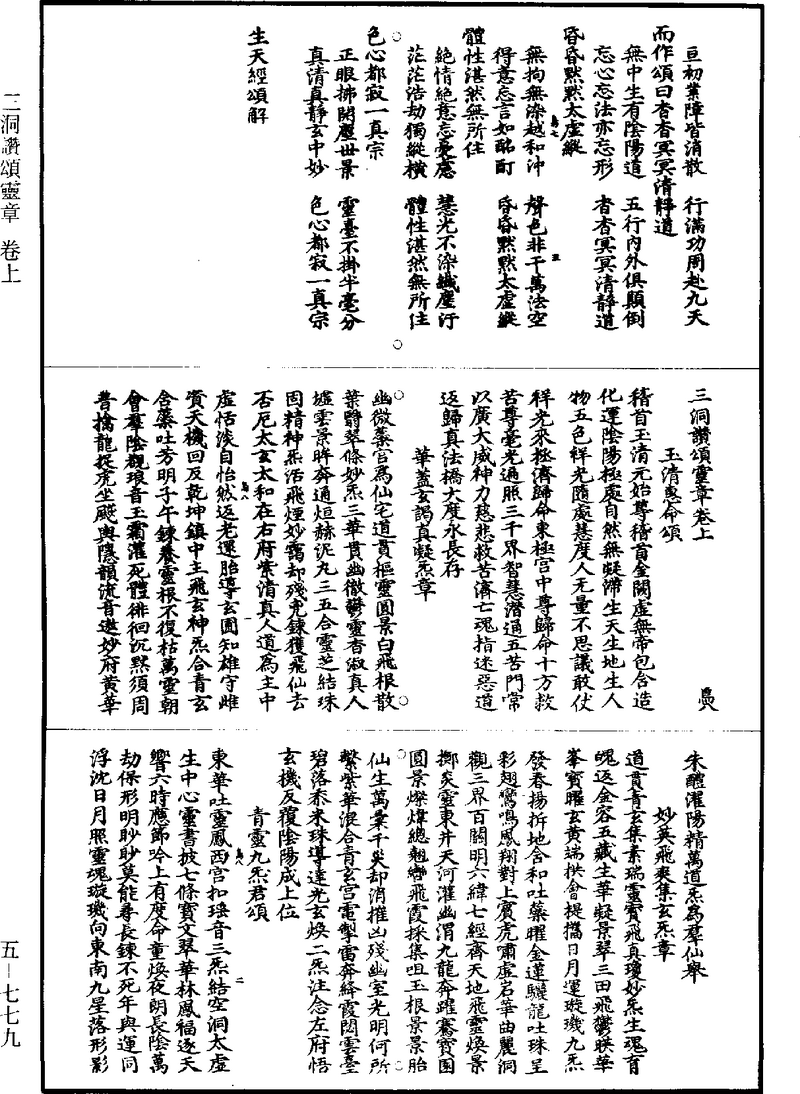 亘初業障皆消散　行滿功周赴九天
而作頌曰杳杳冥冥清靜道
無中生有陰陽道　五行內外俱顛倒
忘心忘法亦忘形　杳杳冥冥清靜道
昏昏默默太虛縱
無拘無染越和沖　聲色非干萬法空
得意忘言如酩酊　昏昏默默太虛縱
體性湛然無所住
絶情絶意忘憂慮　慧光不染纖塵汙
茫茫浩劫獨縱橫　體性湛然無所住
色心都寂一真宗
正眼拂開塵世景　靈臺不掛半毫分
真清真靜玄中妙　色心都寂一真宗
生天經頌解
三洞讚頌靈章卷上
玉清惠命頌
稽首玉清元始尊稽首金闕虛無帝包含造
化運陰陽極處自然無礙滯生天生地生人
物五色祥光隨處慧度人无量不思議敢仗
祥光來極濟歸命東極宮中尊歸命十方救
苦尊毫光遍照三千界智慧潛通五苦門常
以廣大威神力慈悲救苦濟亡魂指迷惡道
返歸真法橋大度永長存
華蓋玄謁真凝炁章
幽微蘂宮爲仙宅道貫樞靈圓景白飛根散
葉翳翠條妙炁三華貫幽徹鬱靈香淑真人
墟雲景眸奔通烜赫泥九三五合靈芝結珠
固精神炁活飛煙妙靄却殘兇鍊獲飛仙去
否厄太玄太和在右府紫清真人道爲主中
虛恬淡自怡然返老還胎導玄圃知雄守雌
質天機回反乾坤鎮中主飛玄神炁合青玄
含蘂吐芳明子午鍊養靈根不復枯萬靈朝
會羣陰觀琅音玉霜灌死體徘徊沉默須周
普擒龍捉虎坐飇輿隱韻流音遨妙府黃華
朱醴濯陽精萬道炁爲羣仙舉
妙英飛爽集玄炁章
道貫青玄集素瑞靈寶飛真瓊妙炁生魂育
魄返金容五藏生華凝景翠三田飛鬱暎華
峯寶曜玄黃端拱會提攜日月運璇璣九炁
發春揚拆地含和吐蘂曜金蓮驪龍吐珠呈
彩翅鸞鳴鳳翔對上賓虎肅虛宕華曲麗洞
觀三界百關明六緯七經齊天地飛靈煥景
擲炎靈東井天河灌幽渭九龍奔躍鶱寶園
圓景燦煒總翹巒飛霞採集咀玉根景景胎
仙生萬葉千災却消摧凶殘幽室光明何所
繫紫華混合青玄宮電掣雷奔絳霞闕雲臺
碧落黍米珠導達光玄煥二炁注念左府悟
玄機反覆陰陽成上位
青靈九炁君頌
東華吐靈鳳西宮扣瑤音三炁結空洞太虛
生中心靈書披七條寶文翠華林鳳福逐天
響六時應節吟上有度命童煥夜朗長陰萬
劫保形明眇眇莫能尋長鍊不死年與運同
浮沈日月照靈魂璇璣向東南九星落形影
三洞讚頌靈章　卷上
五－七七九